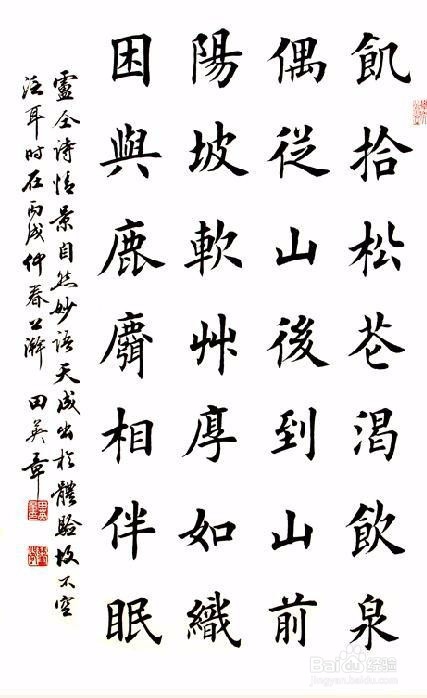 飢拾松花渴飲泉
偶從山後到山前
陽坡軟艸厚如織
困與鹿麛相伴眠
盧仝詩情景自然妙語天成出於體驗故不空
泛耳時在丙戌仲春上澣 田英章
Baidu 经验
jingyan.baidu.com